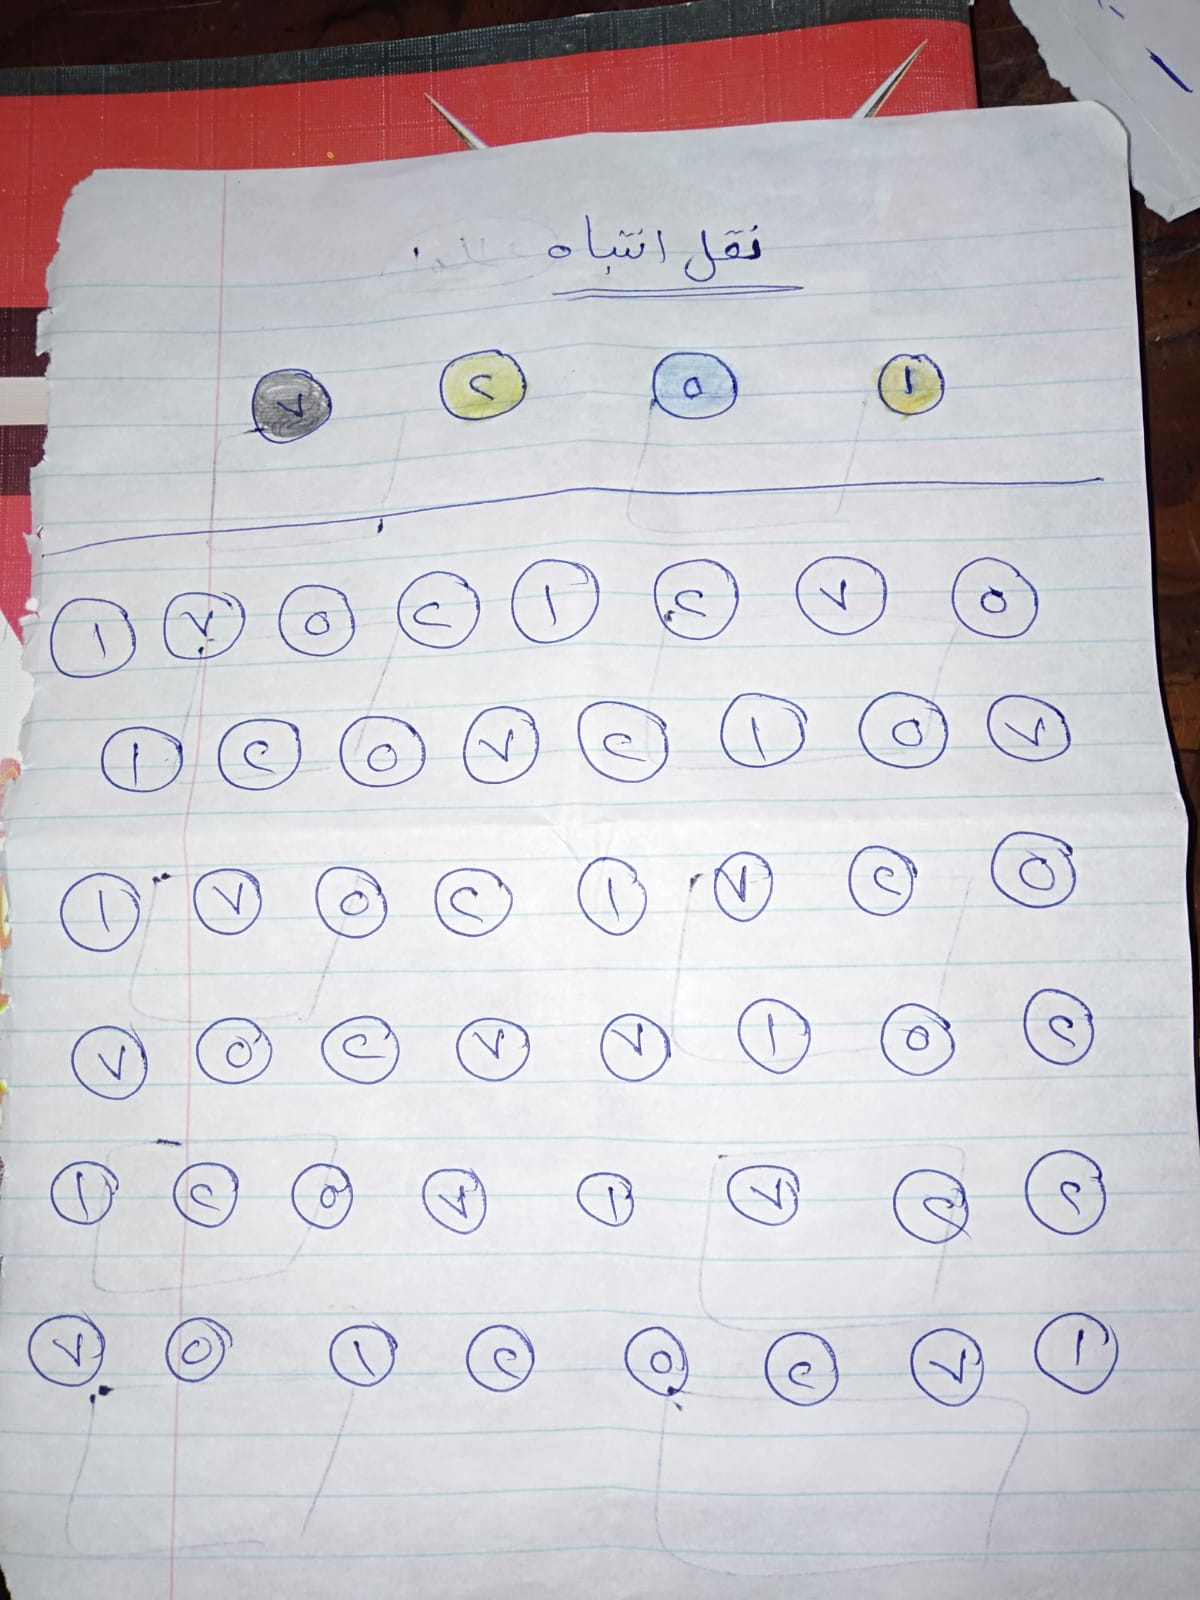 نقل انتباه
١ ٥ ٢ ٧
٥ ٧ ٢ ١ ٢ ٥ ٧ ١
٧ ٥ ١ ٢ ٧ ٥ ٢ ١
٥ ٢ ٧ ١ ٢ ٥ ٧ ١
٢ ٥ ١ ٧ ٧ ٢ ٥ ٧
٢ ٢ ٧ ١ ٧ ٥ ٢ ١
١ ٧ ٢ ٥ ٢ ١ ٥ ٧